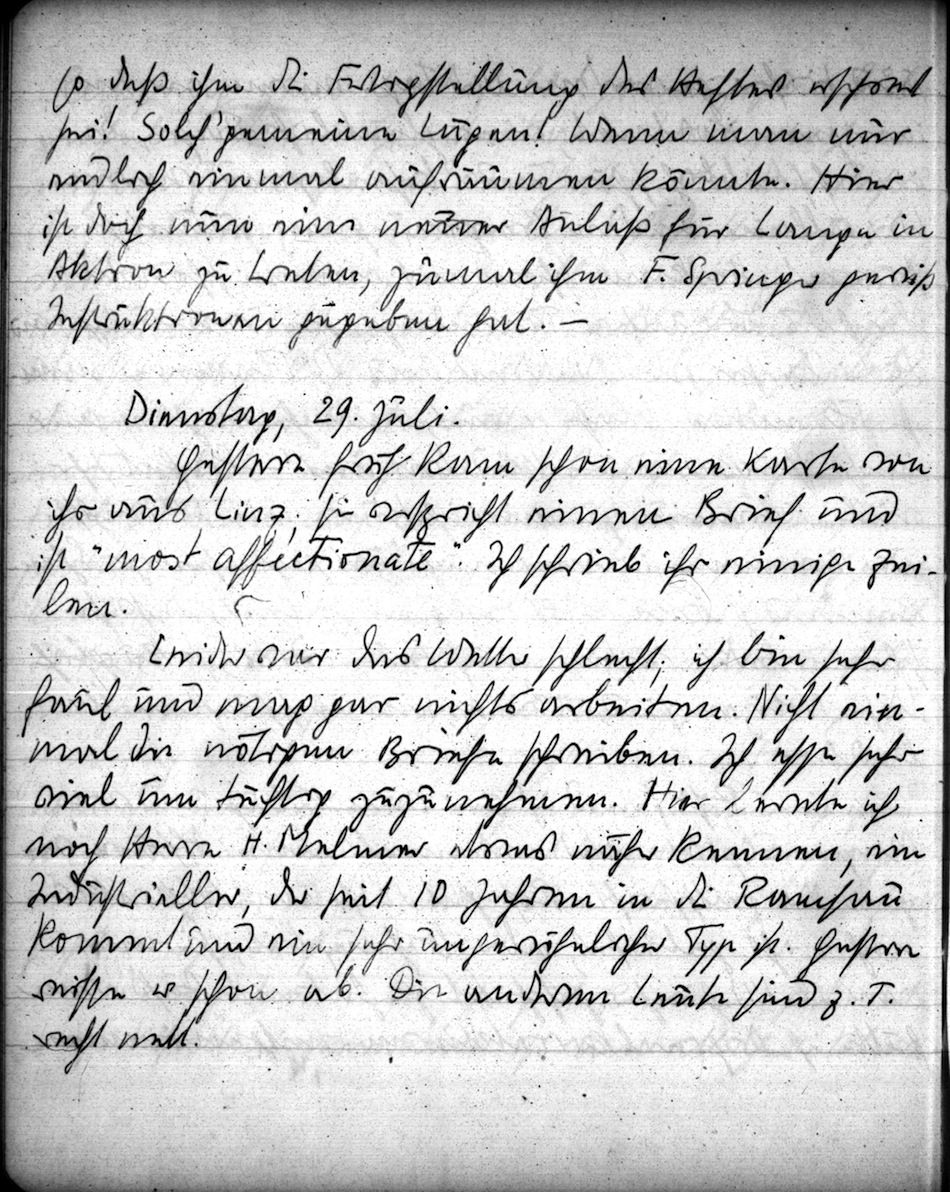 so daß ihm die Fertigstellung des Heftes erschwert
sei! Solch' gemeine Lügen! Wenn man nur
endlich einmal aufräumen könnte. Hier
ist doch nun ein netter Anlaß für Lampe in
Aktion zu treten, zumal ihm F. Springer gewiß
Instruktionen gegeben hat. —
Dienstag, 29. Juli.
Gestern früh kam schon eine Karte von
ihr aus Linz; sie verspricht einen Brief und
ist "most affectionate". Ich schrieb ihr einige Zei-
len.
Leider war das Wetter schlecht; ich bin sehr
faul und mag gar nichts arbeiten. Nicht ein-
mal die nötigen Briefe schreiben. Ich esse sehr
viel um tüchtig zuzunehmen. Hier lernte ich
noch Herrn H. Melmer etwas näher kennen, ein
Industrieller, der seit 10 Jahren in die Ramsau
kommt und ein sehr ungewöhnlicher Typ ist. Gestern
reiste er schon ab. Die anderen Leute sind z. T.
recht nett.